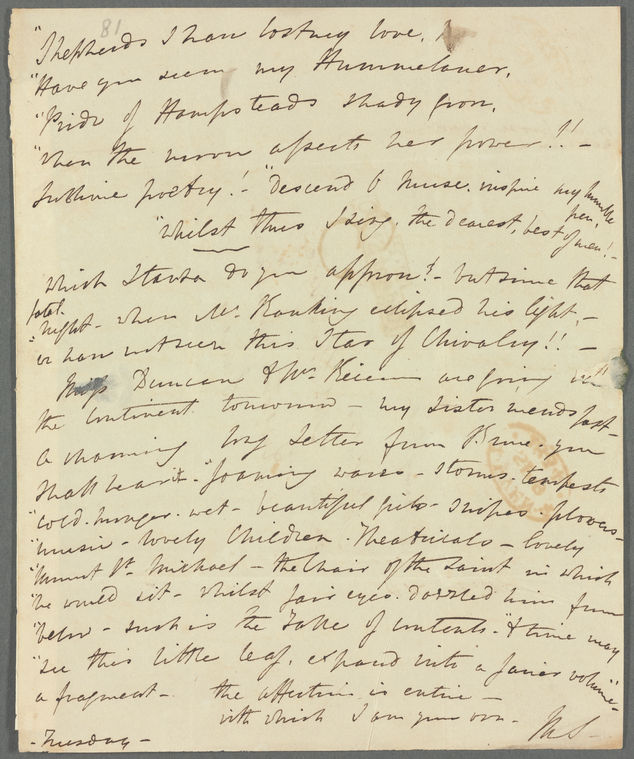 81
"Shepherds I have lost my love,
"Have you seen my
"Pride of Hampsteads shady grove,
"When the moon affects her power!! –
Sublime poetry! – "Descend O Muse. inspire my humble pen,
"Whilst thus I sing, the dearest, best of men! –
which Stanza do you approve? – but since that
fatal
"night – when Mr. Ranking eclipsed his light, –
we have not seen this Star of Chivalry!! –
Miss Duncan & Mr. are going
the Continent tomorrow – my Sister mends fast –
a charming long Letter from you
shall hear it – "foaming waves – storms. tempests
"cold. hunger. wet – beautiful girls – snipes. plovers –
"music – lovely Children. Theatricals – lovely
"Mount St. Michael – the Chair of the Saint in which
"he would sit – whilst fair eyes. dazzled him from
"below – such is the Table of contents. & time may
"see this little leaf, expand into a fairer volume" –
a fragment – the affection is entire –
with which I am your own –
MS –
– Tuesday –